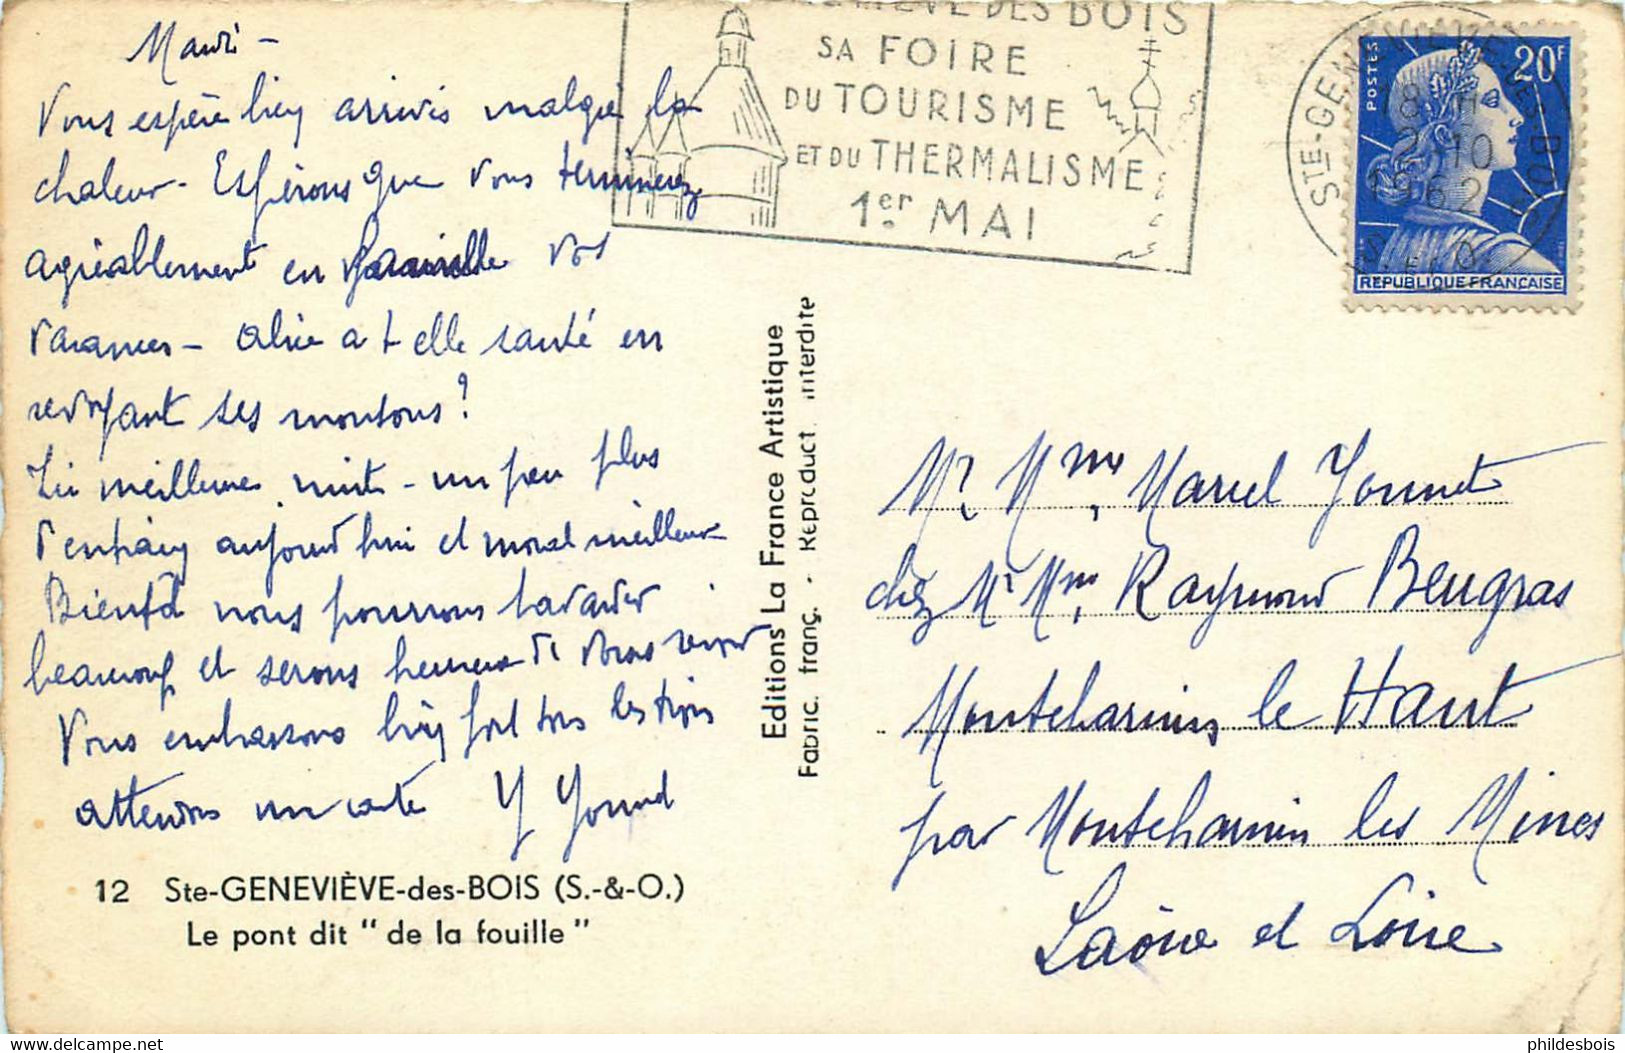 Mardi -
Vous espère bien arrivés malgré la
chaleur - Espérons que vous terminerez
agréablement en famille vos
vacances - Aline a t elle sauté en
revoyant ses moutons ?
Ici meilleure nuit - un peu plus
d'entrain aujourd'hui et moral meilleur
Bientôt nous pourrons bavarder
beaucoup et serons heureux de vous revoir
Vous embrassons bien fort tous les trois
attendons une carte Y Yonnet
12 Ste-GENEVIÈVE-des-BOIS (S.-&-O.)
Le pont dit " de la fouille "
Editions La France Artistique
Fabric. franç. - Reproduct. interdite
DES BOIS
SA FOIRE
DU TOURISME
ET DU THERMALISME
1er MAI
STE-GENEVIEVE-DES-BOIS
18 H
2-10
1962
S.-ET-O.
POSTES
20F
REPUBLIQUE FRANÇAISE
Mr Mme Marcel Yonnet
chez Mr Mme Raymond Beugras
Montchanin le Haut
par Montchanin les Mines
Saône et Loire
delcampe.net
phildesbois